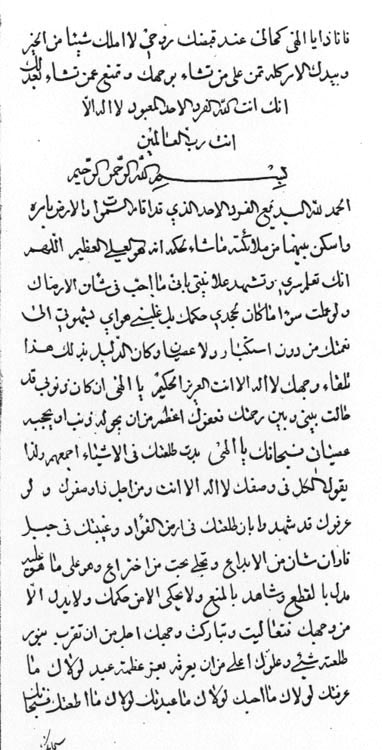 فانا ذا يا الهي كحالي عند قبضك روحي لا املك شيئا من الخير
وبيدك الامر كله تمن على من تشاء بوجهك وتمنع عمن تشاء بعدلك
انك انت الله الفرد الاحد المعبود لا اله الا
انت رب العالمين
بسم الله الرحمن الرحيم
الحمد لله البديع الفرد الاحد الذي قد اقام السموات والارض بامره
واسكن بينهما من ملائكته ما شاء بحكمه انه هو العلي العظير اللهم
انك تعلم سري وتشهد علانيتي باني ما احب في شان الا رضاك
ولو عملت سوء اما كان لجدي حكمك بل غلبني هواي بشهوتي الى
نعمتك من دون استكبار ولا عصيان وكان الدليل بذلك هذا
تلقاء وجهك لا اله الا انت العزيز الحكيم يا الهي ان كان ذنوبي قد
حالت بيني وبين رحمتك فعفوك اعظم من ان يحوله ذنب او يحجبه
عصيان سبحانك يا الهي بدت طلعتك في الاشياء اجمعهم ولذا
يقول الكل في وصفك لا اله الا انت ومن اجل ذا وصفوك ولو
عرفوك قد شهدوا بان طلعتك في ارض الفؤاد وغيبتك في جبل
فاران شان من الابداع وتجلي بحت من اختراع وهو على ما هو عليه
مدل بالقطع وشاهد بالمنع ولا يحكي الا من حكمك ولا يدل الا
من وجهك فتعاليت وتباركت وجهك اجل من ان تقرب بنور
طلعته شيء وعلوك اعلى من ان يعرفه بعز عظمته عبد لولاك ما
عرفتك لولاك ما احبك لولاك ما عبدتك لولاك ما اطعتك سبحانك